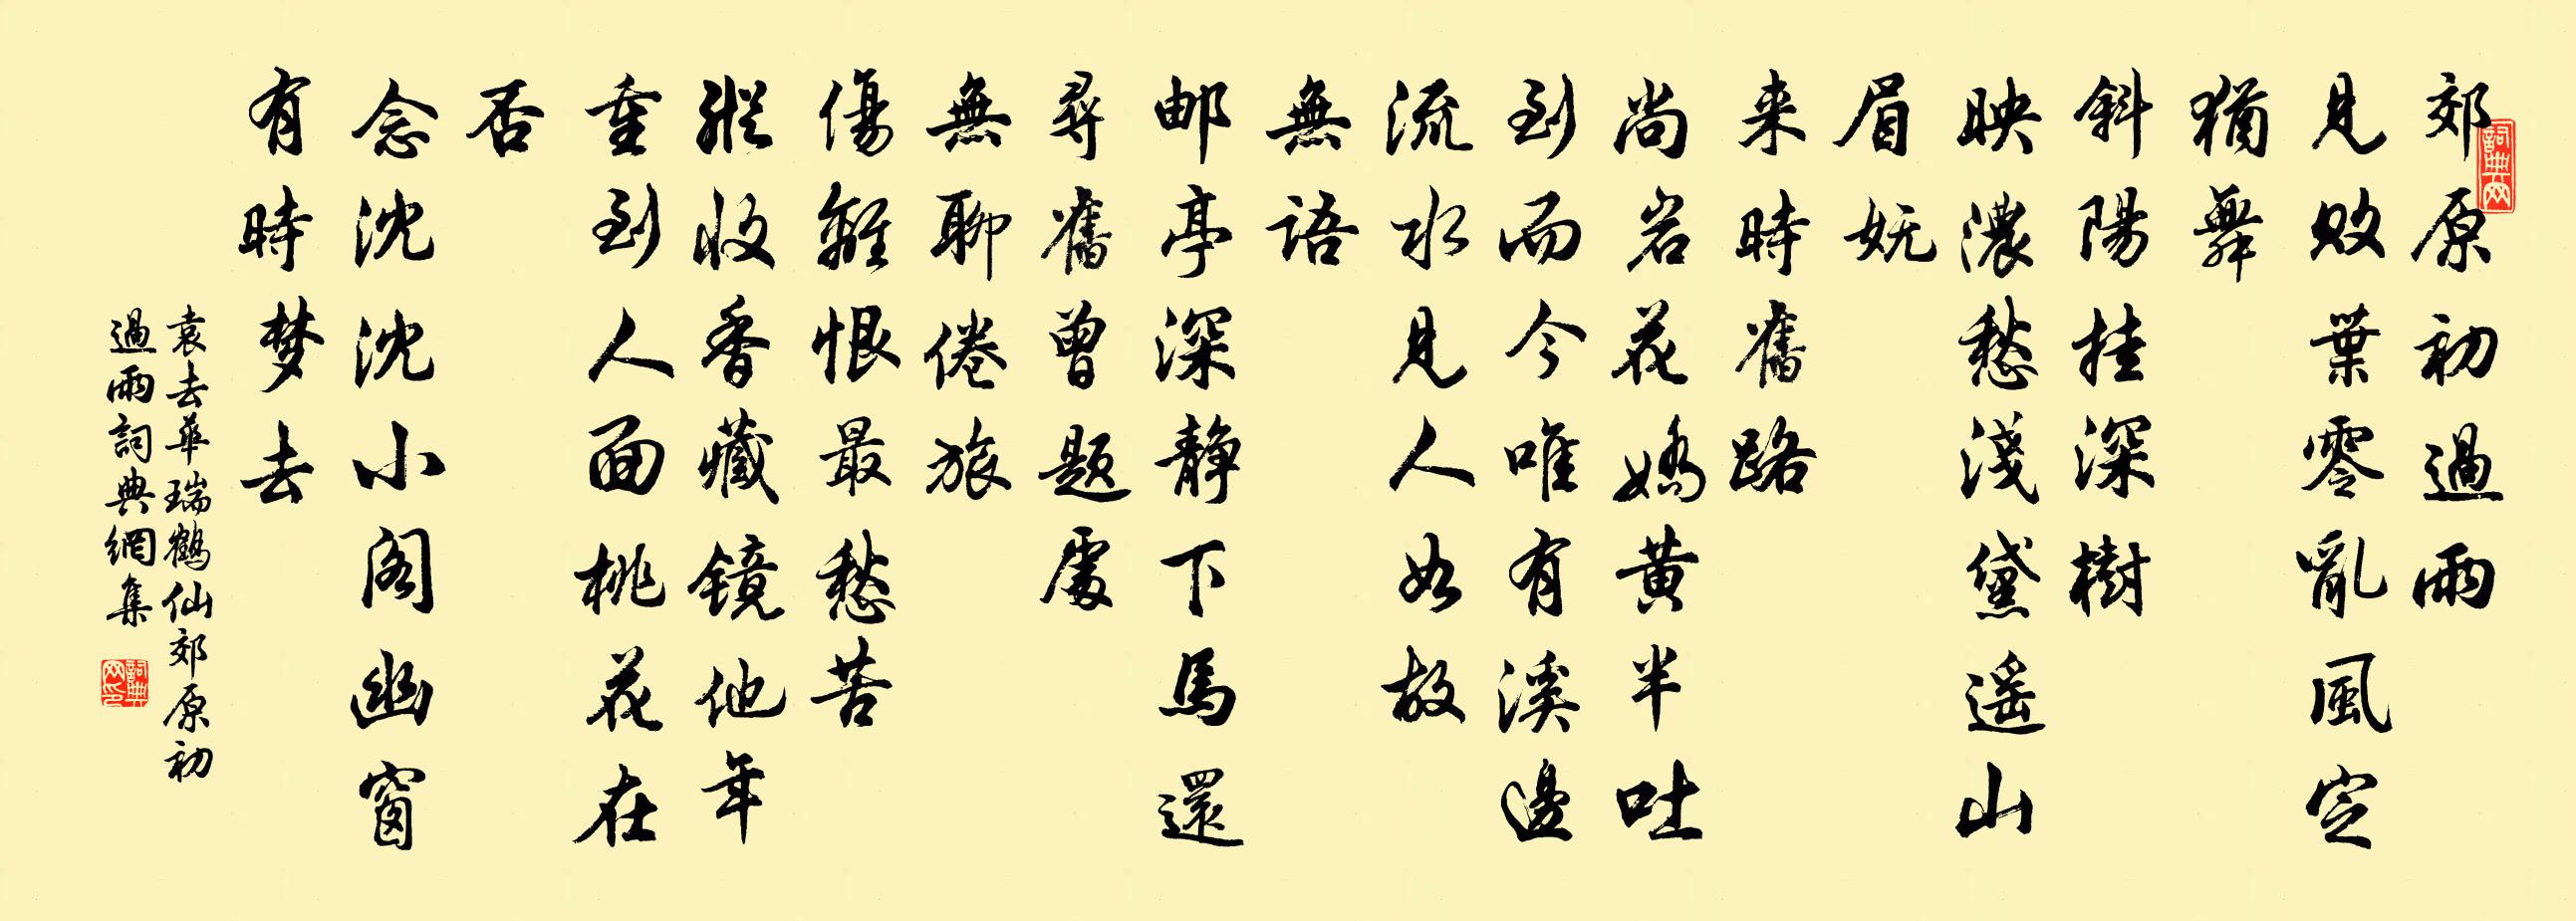 郊原初過雨
見敗葉零亂風定
猶舞
斜陽挂深樹
映濃愁淺黛遥山
眉妩
来時舊路
尚岩花嬌黄半吐
到而今唯有溪邊
流水見人如故
無語
邮亭深静下馬還
尋舊曾题處
無聊倦旅
傷離恨最愁苦
縱收香藏镜他年
重到人面桃花在
否
念沈沈小阁幽窗
有時梦去
袁去華瑞鶴仙郊原初
過雨詞典網集
詞典网
詞典网印